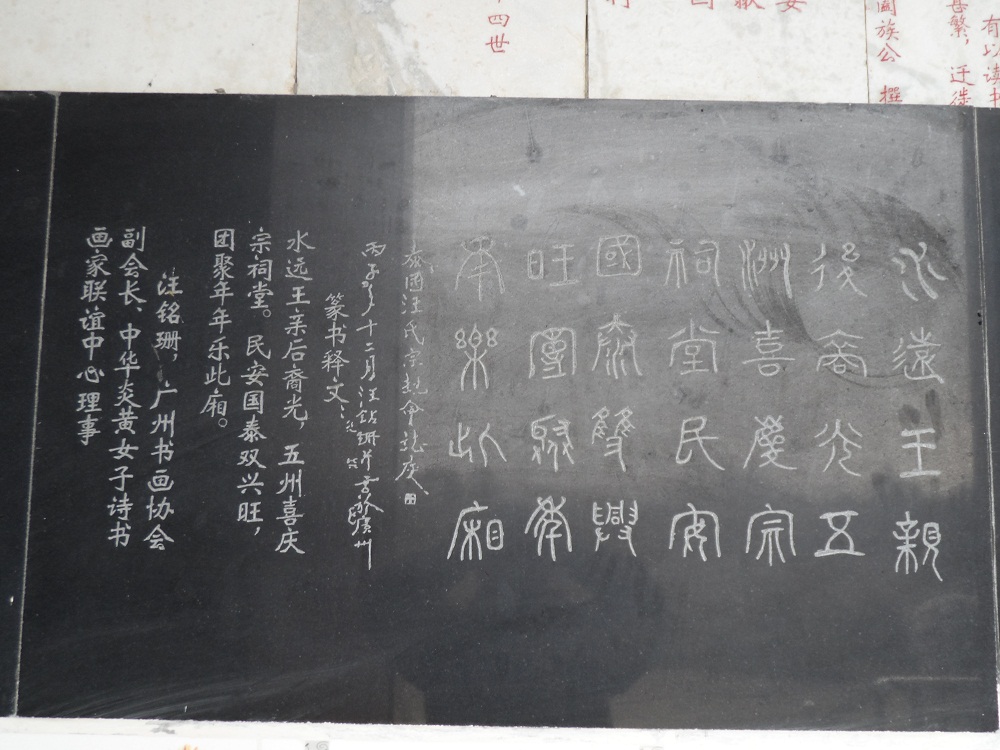 水遠王親
後裔光五
洲喜慶宗
祠堂民安
國泰雙興
旺團聚年
年樂此廂
泰國汪氏宗親會誌慶
丙子年十二月汪铭珊书于廣州
篆书释文：
水远王亲后裔光，五州喜庆
宗祠堂。民安国泰双兴旺，
团聚年年乐此厢。
汪铭珊，广州书画协会
副会长、中华炎黄女子诗书
画家联谊中心理事
有以读书
甚繁，迁徙
阖族公 撰
四世